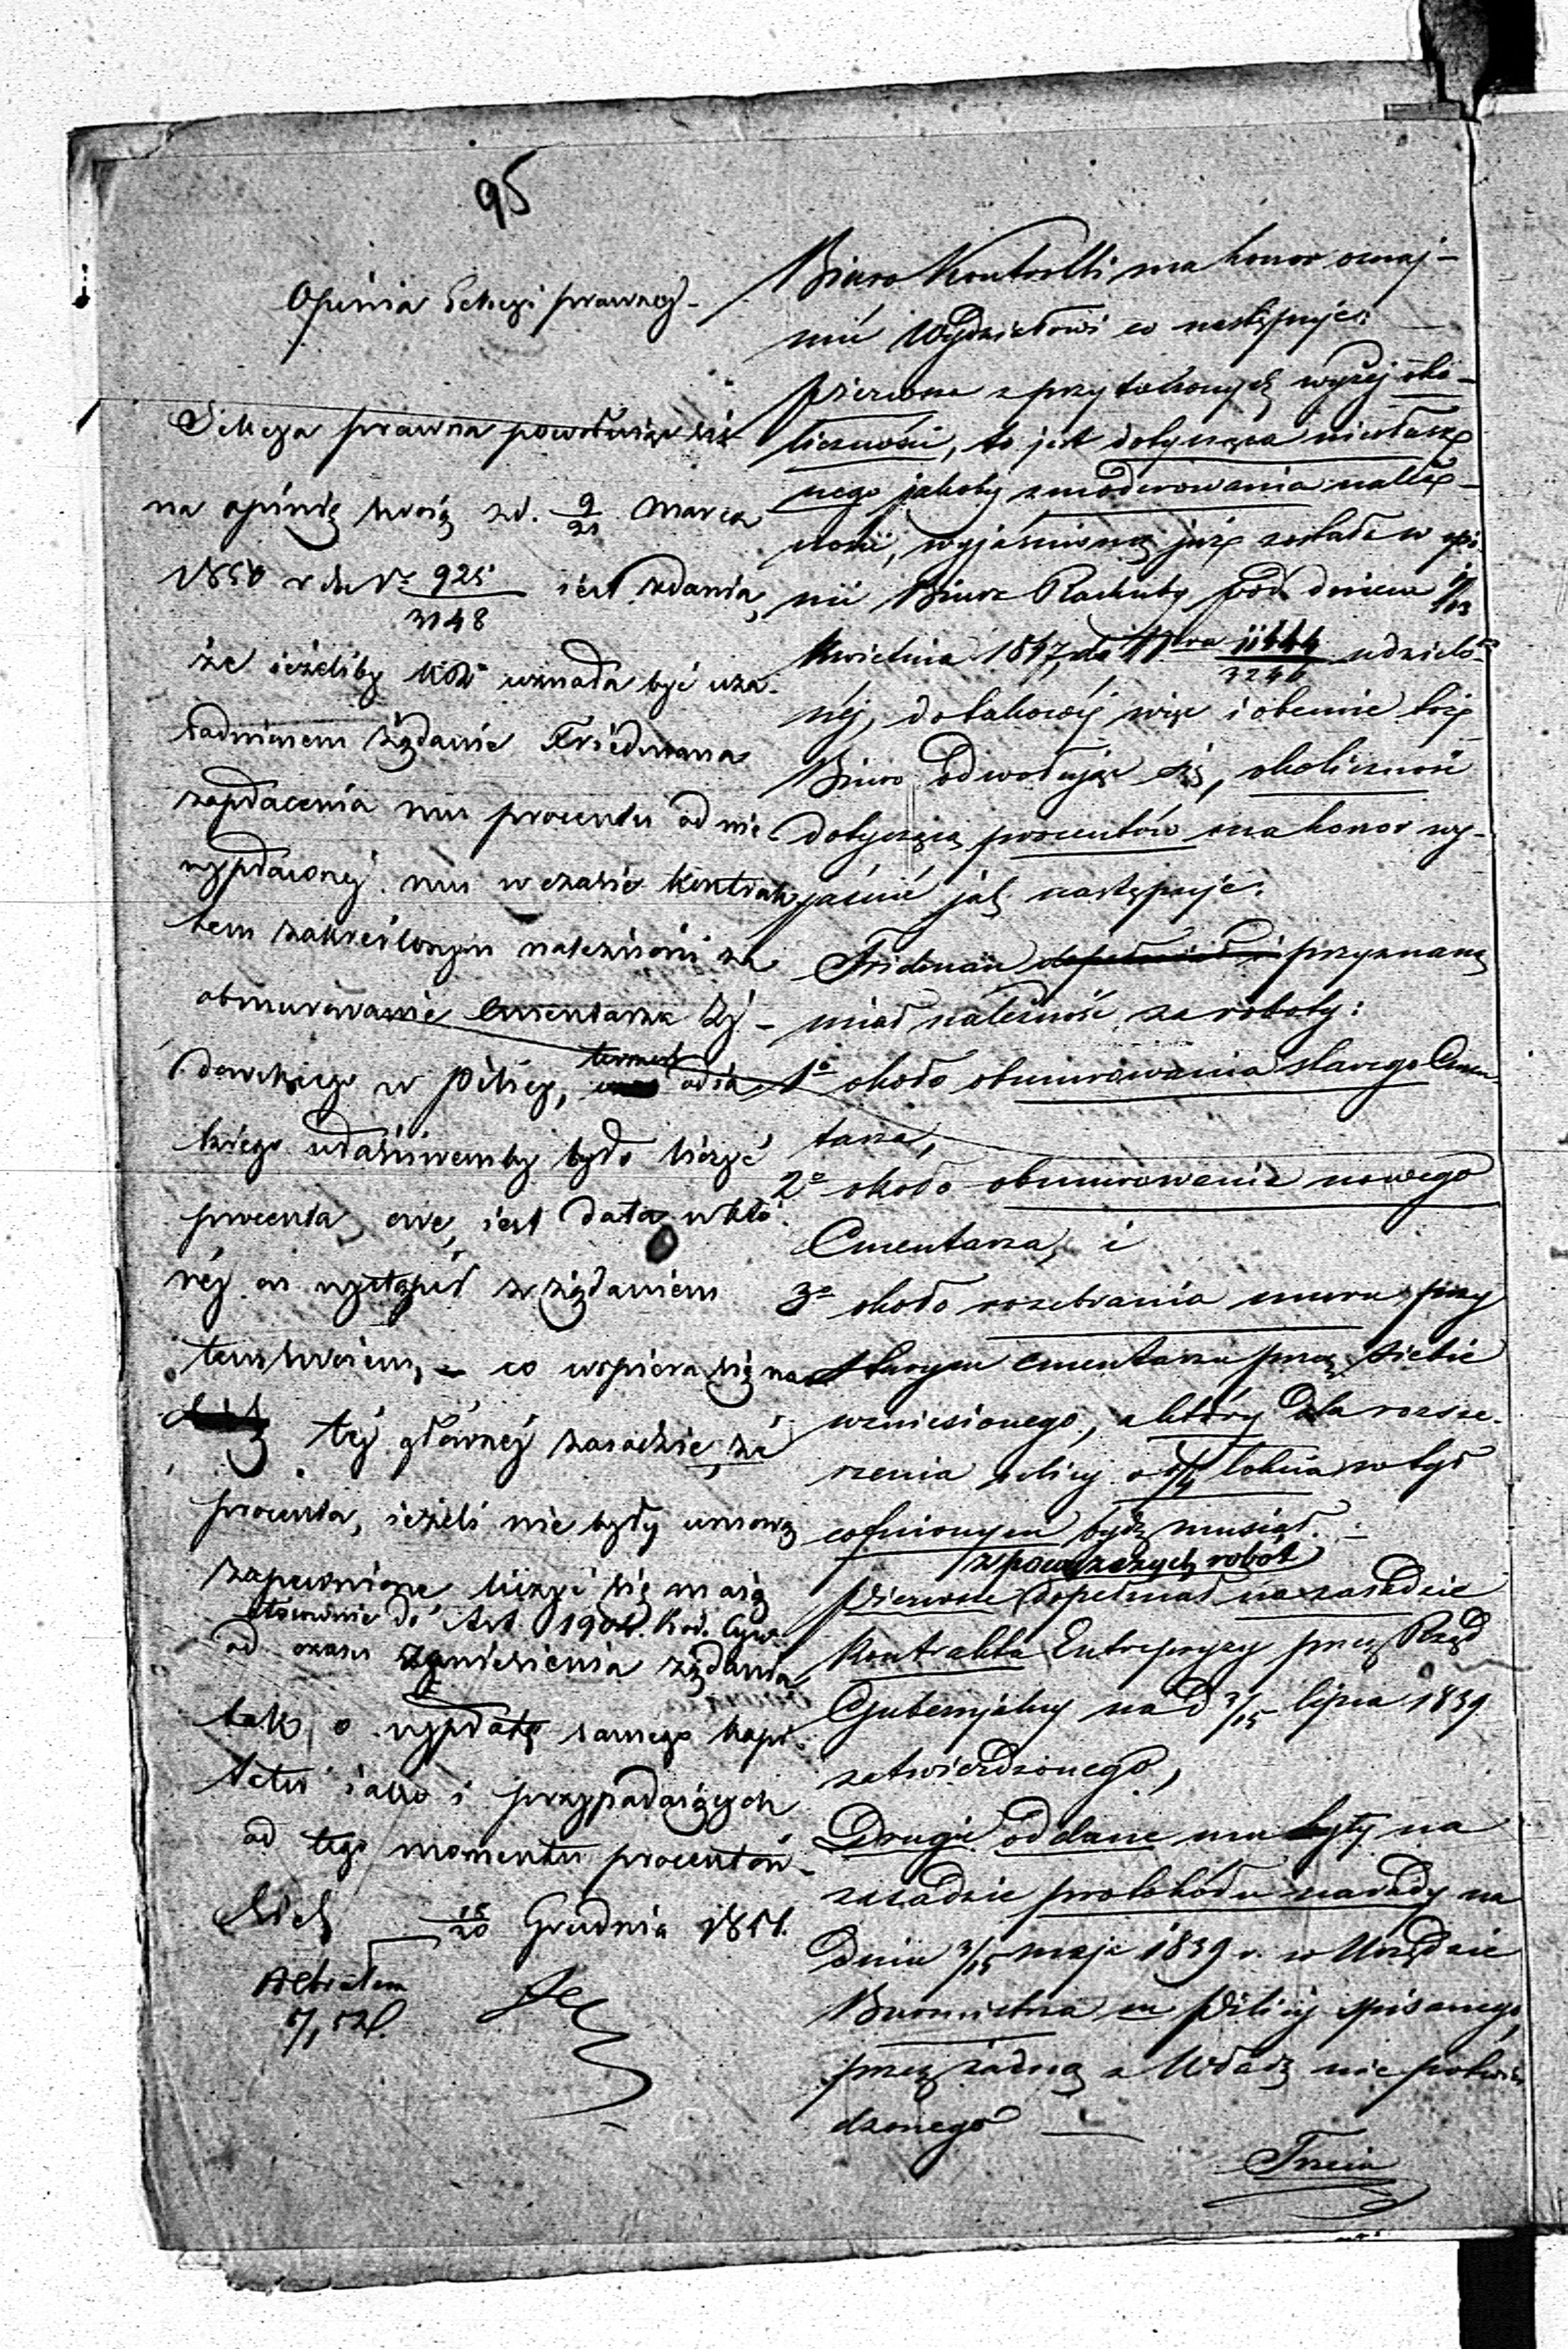 95
Opinia Sekcyi prawnej
Sekcya prawna powołując się
na opinię swoię z d. 9/21 Marca
1850 r do Nr 925/3148 iest zdania,
że ieżeliby KRz uznała być uza-
sadnionem żądanie Friedmana
zapłacenia mu procentu od nie
wypłaconéj mu w czasie kontrak
tem zakreślonym należności za
obmurowanie Cmentarza Ży-
dowskiego w Pilicy, termin od ia
kiego właściwemby było liczyć
procenta owe, iest data w któ
réj on wystąpił z żądaniem
temsamem, – co wspiera się na
téj głównéj zasadzie, że
procenta, ieżeli nie były umową
zapewnione, liczyć się maią
stosownie do Art. 1904. Kod. Cyw.
od czasu zaniesienia żądania,
tak o wypłatę samego kapi-
tału iako i przypadaiących
od tego momentu procentów.
18/20 Grudnia 1851.
Biuro Kontrolli ma honor oznaj-
mić Wydziałowi co następuje:
Pierwsza z przytoczonych wyżej oko-
liczności, to jest dotycząca niewłaści-
wego jakoby zmoderowania należ-
ności, wyjaśnioną już została w opi
nii Biura Rachuby pod dniem 1/13
Kwietnia 1847 do Nra 11444/3246 udzielo-
néj, do takowéj więc i obecnie toż
Biuro odwołując się, okoliczność
dotyczącą procentów ma honor wy-
jaśnić jak następuje:
Fridman przyznaną
miał należność za roboty:
1o około obmurowania starego Cmen-
tarza,
2o około obmurowania nowego
Cmentarza, i
3o około rozebrania muru przy
starym cmentarzu przez siebie
wzniesionego, a który dla rozsze-
rzenia ulicy o łokcia w tył
cofnionym bydź musiał. –
z powyższych robót
Pierwsze dopełniał na zasadzie
kontraktu Entrepryzy przez Rząd
Gubernjalny na d 3/15 lipca 1839
zatwierdzonego,
Drugie oddane mu były na
zasadzie protokółu narady na
dniu 3/15 maja 1839 r. w Urzędzie
Burmistrza m Pilicy spisanego,
przez żadną z Władz nie potwier
dzonego —
Trzecia